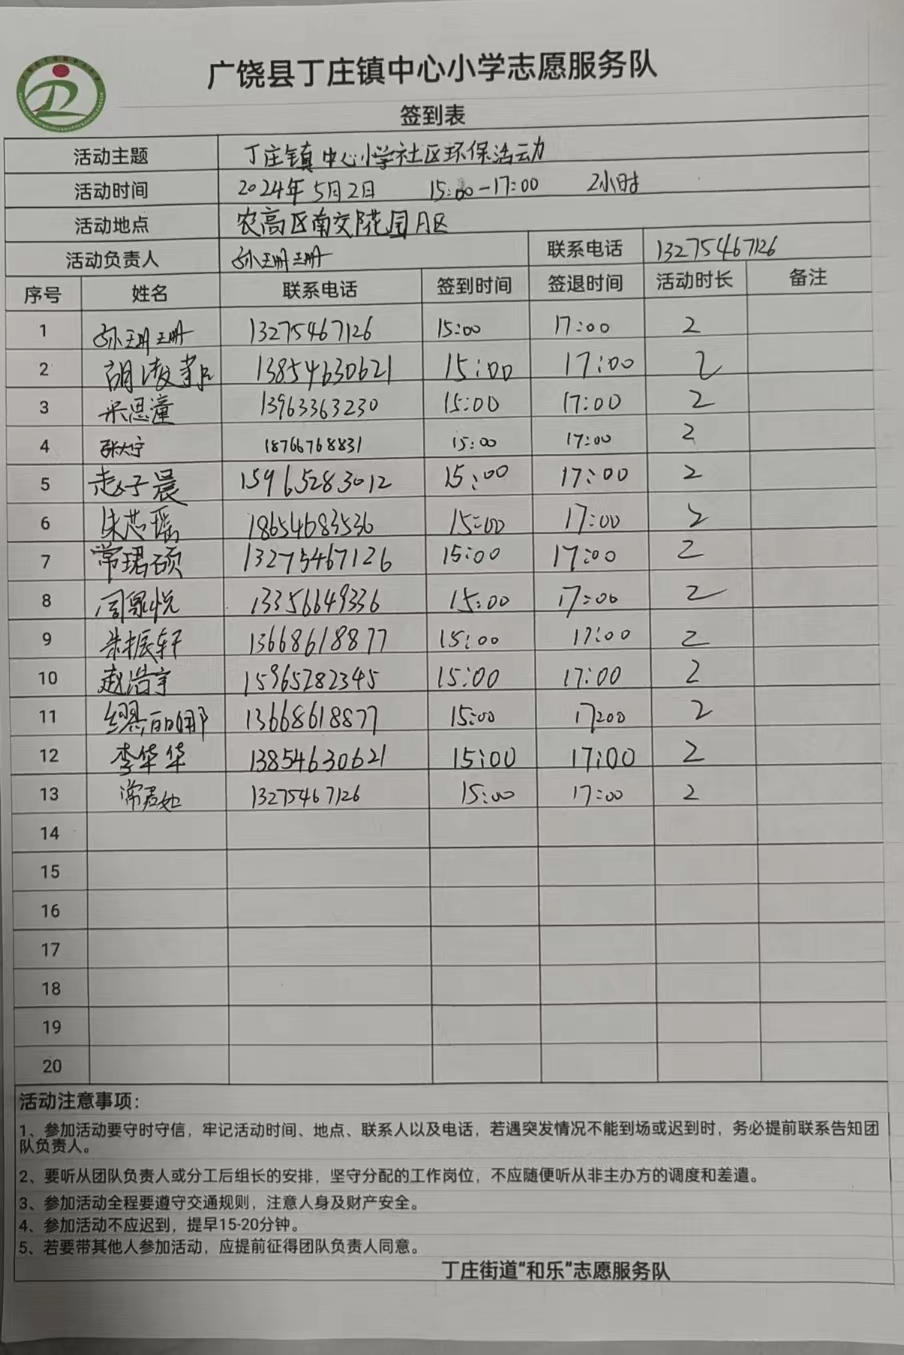 广饶县丁庄镇中心小学志愿服务队
签到表
活动主题 丁庄镇中心小学社区环保活动
活动时间 2024年5月2日 15:00-17:00 2小时
活动地点 农高区南交院花园A区
活动负责人 孙珊珊 联系电话 13275467126
序号 姓名 联系电话 签到时间 签退时间 活动时长 备注
1 孙珊珊 13275467126 15:00 17:00 2
2 胡凌菲 13854630621 15:00 17:00 2
3 宋思潼 13963363230 15:00 17:00 2
4 张大宁 18766768831 15:00 17:00 2
5 赵子晨 15965283012 15:00 17:00 2
6 朱芯瑶 18654683536 15:00 17:00 2
7 常珺硕 13275467126 15:00 17:00 2
8 周悦 13356649336 15:00 17:00 2
9 朱振轩 13668618877 15:00 17:00 2
10 赵浩宇 15965282345 15:00 17:00 2
11 缪丽娜 13668618877 15:00 17:00 2
12 李华华 13854630621 15:00 17:00 2
13 常君如 13275467126 15:00 17:00 2
14
15
16
17
18
19
20
活动注意事项：
1、参加活动要守时守信，牢记活动时间、地点、联系人以及电话，若遇突发情况不能到场或迟到时，务必提前联系告知团
队负责人。
2、要听从团队负责人或分工后组长的安排，坚守分配的工作岗位，不应随便听从非主办方的调度和差遣。
3、参加活动全程要遵守交通规则，注意人身及财产安全。
4、参加活动不应迟到，提早15-20分钟。
5、若要带其他人参加活动，应提前征得团队负责人同意。
丁庄街道“和乐”志愿服务队